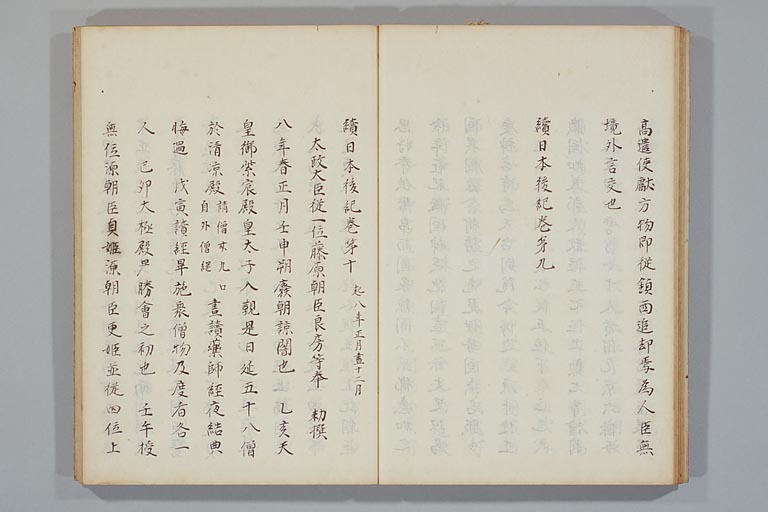 高遣使獻方物即從鎮西追却焉為人臣無
境外言交也
續日本後紀卷第九
續日本後紀卷第十 起八年正月盡十二月
太政大臣從一位藤原朝臣良房等奉 勅撰
八年春正月壬申朔廢朝諒闇也 乙亥天
皇御紫宸殿皇太子入覲是日延五十八僧
於清涼殿 請僧廿九口 自外僧綱 晝讀藥師經夜結典
悔過 戊寅讀經畢施衆僧物及度者各一
人 己卯大極殿㝡勝會之初也 壬午授
無位源朝臣貞姫源朝臣更姫並從四位上